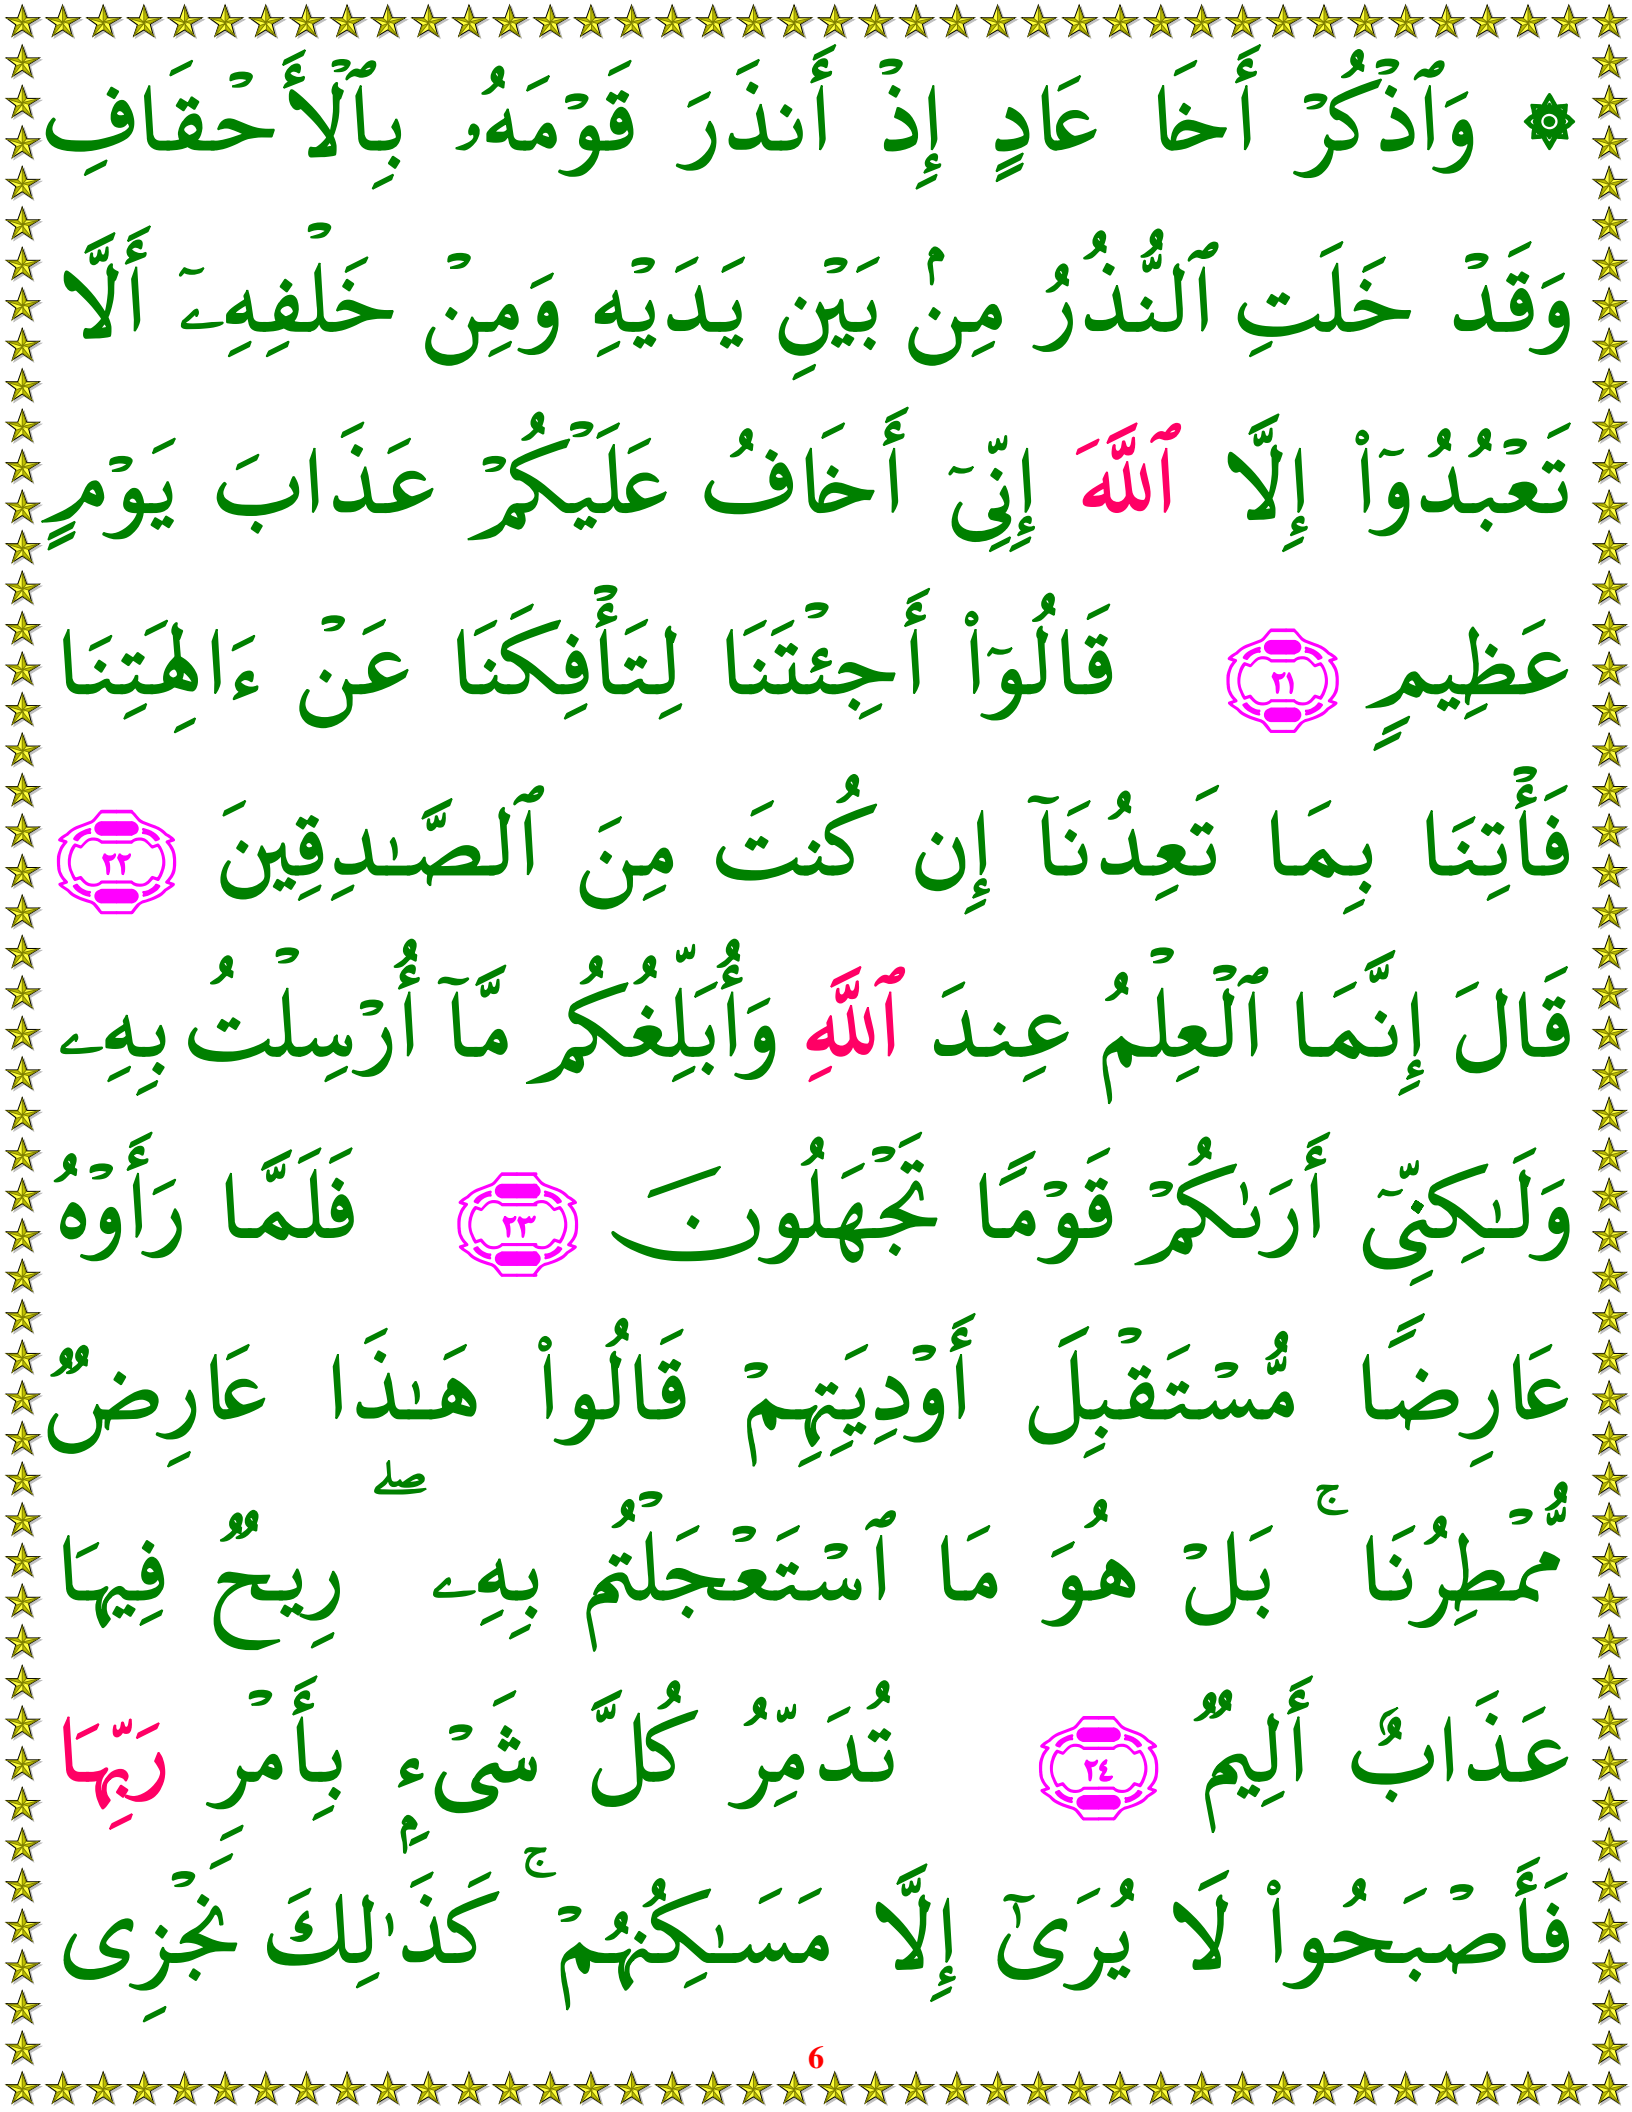 ۞ وَٱذْكُرْ أَخَا عَادٍ إِذْ أَنذَرَ قَوْمَهُۥ بِٱلْأَحْقَافِ
وَقَدْ خَلَتِ ٱلنُّذُرُ مِنۢ بَيْنِ يَدَيْهِ وَمِنْ خَلْفِهِۦٓ أَلَّا
تَعْبُدُوٓا۟ إِلَّا ٱللَّهَ إِنِّىٓ أَخَافُ عَلَيْكُمْ عَذَابَ يَوْمٍ
عَظِيمٍ ٢١ قَالُوٓا۟ أَجِئْتَنَا لِتَأْفِكَنَا عَنْ ءَالِهَتِنَا
فَأْتِنَا بِمَا تَعِدُنَآ إِن كُنتَ مِنَ ٱلصَّـٰدِقِينَ ٢٢
قَالَ إِنَّمَا ٱلْعِلْمُ عِندَ ٱللَّهِ وَأُبَلِّغُكُم مَّآ أُرْسِلْتُ بِهِۦ
وَلَـٰكِنِّىٓ أَرَىٰكُمْ قَوْمًا تَجْهَلُونَ ٢٣ فَلَمَّا رَأَوْهُ
عَارِضًا مُّسْتَقْبِلَ أَوْدِيَتِهِمْ قَالُوا۟ هَـٰذَا عَارِضٌ
مُّمْطِرُنَا ۚ بَلْ هُوَ مَا ٱسْتَعْجَلْتُم بِهِۦ ۖ رِيحٌ فِيهَا
عَذَابٌ أَلِيمٌ ٢٤ تُدَمِّرُ كُلَّ شَىْءٍۭ بِأَمْرِ رَبِّهَا
فَأَصْبَحُوا۟ لَا يُرَىٰٓ إِلَّا مَسَـٰكِنُهُمْ ۚ كَذَٰلِكَ نَجْزِى
6